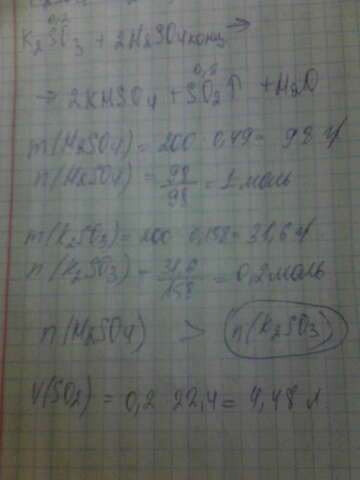 0,2
K₂SO₃ + 2H₂SO₄ конц →
0,2
→ 2KHSO₄ + SO₂↑ + H₂O
m(H₂SO₄) = 200 0,49 = 98 г
n(H₂SO₄) = 98/98 = 1 моль
m(K₂SO₃) = 200 0,158 = 31,6 г
n(K₂SO₃) = 31,6/158 = 0,2 моль
n(H₂SO₄) > n(K₂SO₃)
V(SO₂) = 0,2 22,4 = 4,48 л